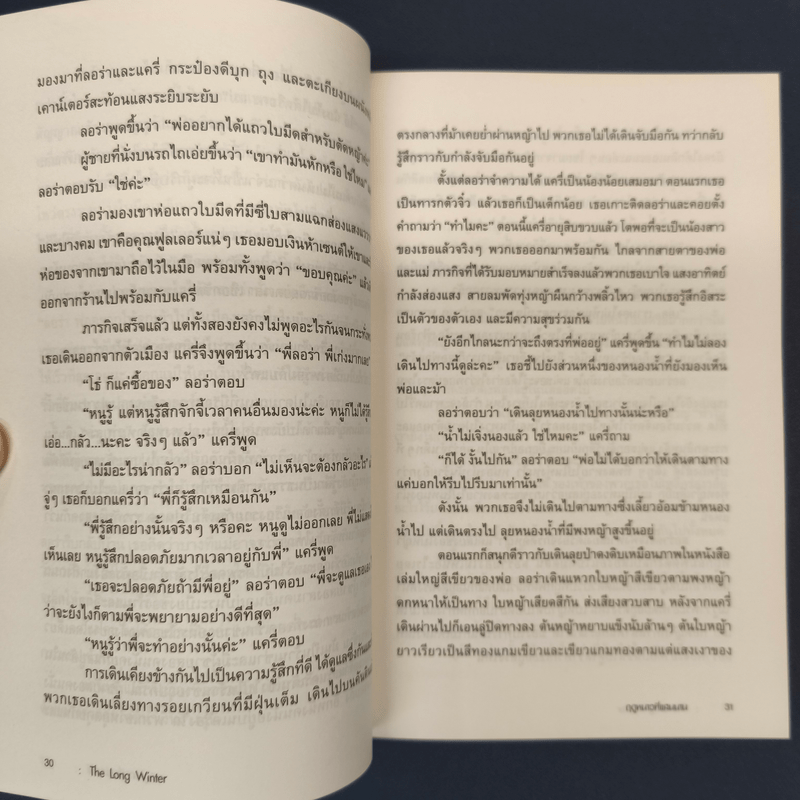 มองมาที่ลอร่าและแครี่ กระป๋องดีบุก ถุง และตะเกียงบน
เคาน์เตอร์สะท้อนแสงระยิบระยับ
ลอร่าพูดขึ้นว่า “พ่ออยากได้แถวใบมีดสำหรับตัดหญ้าค่ะ”
ผู้ชายที่นั่งบนรถไถเอ่ยขึ้นว่า “เขาทำมันหักหรือใช่ไหม”
ลอร่าตอบรับ “ใช่ค่ะ”
ลอร่ามองเขาห่อแถวใบมีดที่มีซี่ใบสามแฉกส่องแสง
และบางคม เขาคือคุณฟูลเลอร์แน่ๆ เธอมอบเงินห้าเซนต์ให้เขา
ห่อของจากเขามาถือไว้ในมือ พร้อมทั้งพูดว่า “ขอบคุณค่ะ”
ออกจากร้านไปพร้อมกับแครี่
ภารกิจเสร็จแล้ว แต่ทั้งสองยังคงไม่พูดอะไรกันจน
เธอเดินออกจากตัวเมือง แครี่จึงพูดขึ้นว่า “พี่ลอร่า พี่เก่งมาก
“โธ่ ก็แค่ซื้อของ” ลอร่าตอบ
“หนูรู้ แต่หนูรู้สึกจักจี้เวลาคนอื่นมองน่ะค่ะ หนูก็ไม่ได้
เอ่อ...กลัว...นะคะ จริงๆ แล้ว” แครี่พูด
“ไม่มีอะไรน่ากลัว” ลอร่าบอก “ไม่เห็นจะต้องกลัวอะไร”
จู่ๆ เธอก็บอกแครี่ว่า “พี่ก็รู้สึกเหมือนกัน”
“พี่รู้สึกอย่างนั้นจริงๆ หรือคะ หนูดูไม่ออกเลย พี่ไม่
เห็นเลย หนูรู้สึกปลอดภัยมากเวลาอยู่กับพี่” แครี่พูด
“เธอจะปลอดภัยถ้ามีพี่อยู่” ลอร่าตอบ “พี่จะดูแลเธอ
ว่าจะยังไงก็ตามพี่จะพยายามอย่างดีที่สุด”
“หนูรู้ว่าพี่จะทำอย่างนั้นค่ะ” แครี่ตอบ
การเดินเคียงข้างกันไปเป็นความรู้สึกที่ดี ได้ดูแลซึ่งกัน
พวกเธอเดินเลี่ยงทางรอยเกวียนที่มีฝุ่นเต็ม เดินไปบน
30 : The Long Winter
ตรงกลางที่ม้าเคยย่ำผ่านหญ้าไป พวกเธอไม่ได้เดินจับมือกัน ทว่ากลับ
รู้สึกราวกับกำลังจับมือกันอยู่
ตั้งแต่ลอร่าจำความได้ แครี่เป็นน้องน้อยเสมอมา ตอนแรกเธอ
เป็นทารกตัวจิ๋ว แล้วเธอก็เป็นเด็กน้อย เธอเกาะติดลอร่าและคอยตั้ง
คำถามว่า “ทำไมคะ” ตอนนี้แครี่อายุสิบขวบแล้ว โตพอที่จะเป็นน้องสาว
ของเธอแล้วจริงๆ พวกเธอออกมาพร้อมกัน ไกลจากสายตาของพ่อ
และแม่ ภารกิจที่ได้รับมอบหมายสำเร็จลงแล้วพวกเธอเบาใจ แสงอาทิตย์
กำลังส่องแสง สายลมพัดทุ่งหญ้าผืนกว้างพลิ้วไหว พวกเธอรู้สึกอิสระ
เป็นตัวของตัวเอง และมีความสุขร่วมกัน
“ยังอีกไกลนะกว่าจะถึงตรงที่พ่ออยู่” แครี่พูดขึ้น “ทำไมไม่ลอง
เดินไปทางนี้ดูล่ะคะ” เธอชี้ไปยังส่วนหนึ่งของหนองน้ำที่ยังมองเห็น
พ่อและม้า
ลอร่าตอบว่า “เดินลุยหนองน้ำไปทางนั้นน่ะหรือ”
“น้ำไม่เจิ่งนองแล้ว ใช่ไหมคะ” แครี่ถาม
“ก็ได้ งั้นไปกัน” ลอร่าตอบ “พ่อไม่ได้บอกว่าให้เดินตามทาง
แค่บอกให้รีบไปรีบมาเท่านั้น”
ดังนั้น พวกเธอจึงไม่เดินไปตามทางซึ่งเลี้ยวอ้อมข้ามหนอง
น้ำไป แต่เดินตรงไป ลุยหนองน้ำที่มีพงหญ้าสูงขึ้นอยู่
ตอนแรกก็สนุกดีราวกับเดินลุยป่าดงดิบเหมือนภาพในหนังสือ
เล่มใหญ่สีเขียวของพ่อ ลอร่าเดินแหวกใบหญ้าสีเขียวตามพงหญ้า
ดกหนาให้เป็นทาง ใบหญ้าเสียดสีกัน ส่งเสียงสวบสาบ หลังจากแครี่
เดินผ่านไปก็เอนลู่ปิดทางลง ต้นหญ้าหยาบแข็งนับล้านๆ ต้นใบหญ้า
ยาวเรียวเป็นสีทองแกมเขียวและเขียวแกมทองตามแต่แสงเงาของ
ฤดูหนาวที่แสนนาน 31